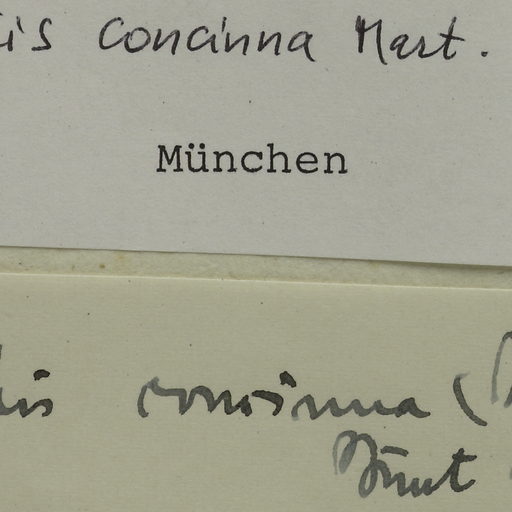 is concinna Mart.
München
is concinna (